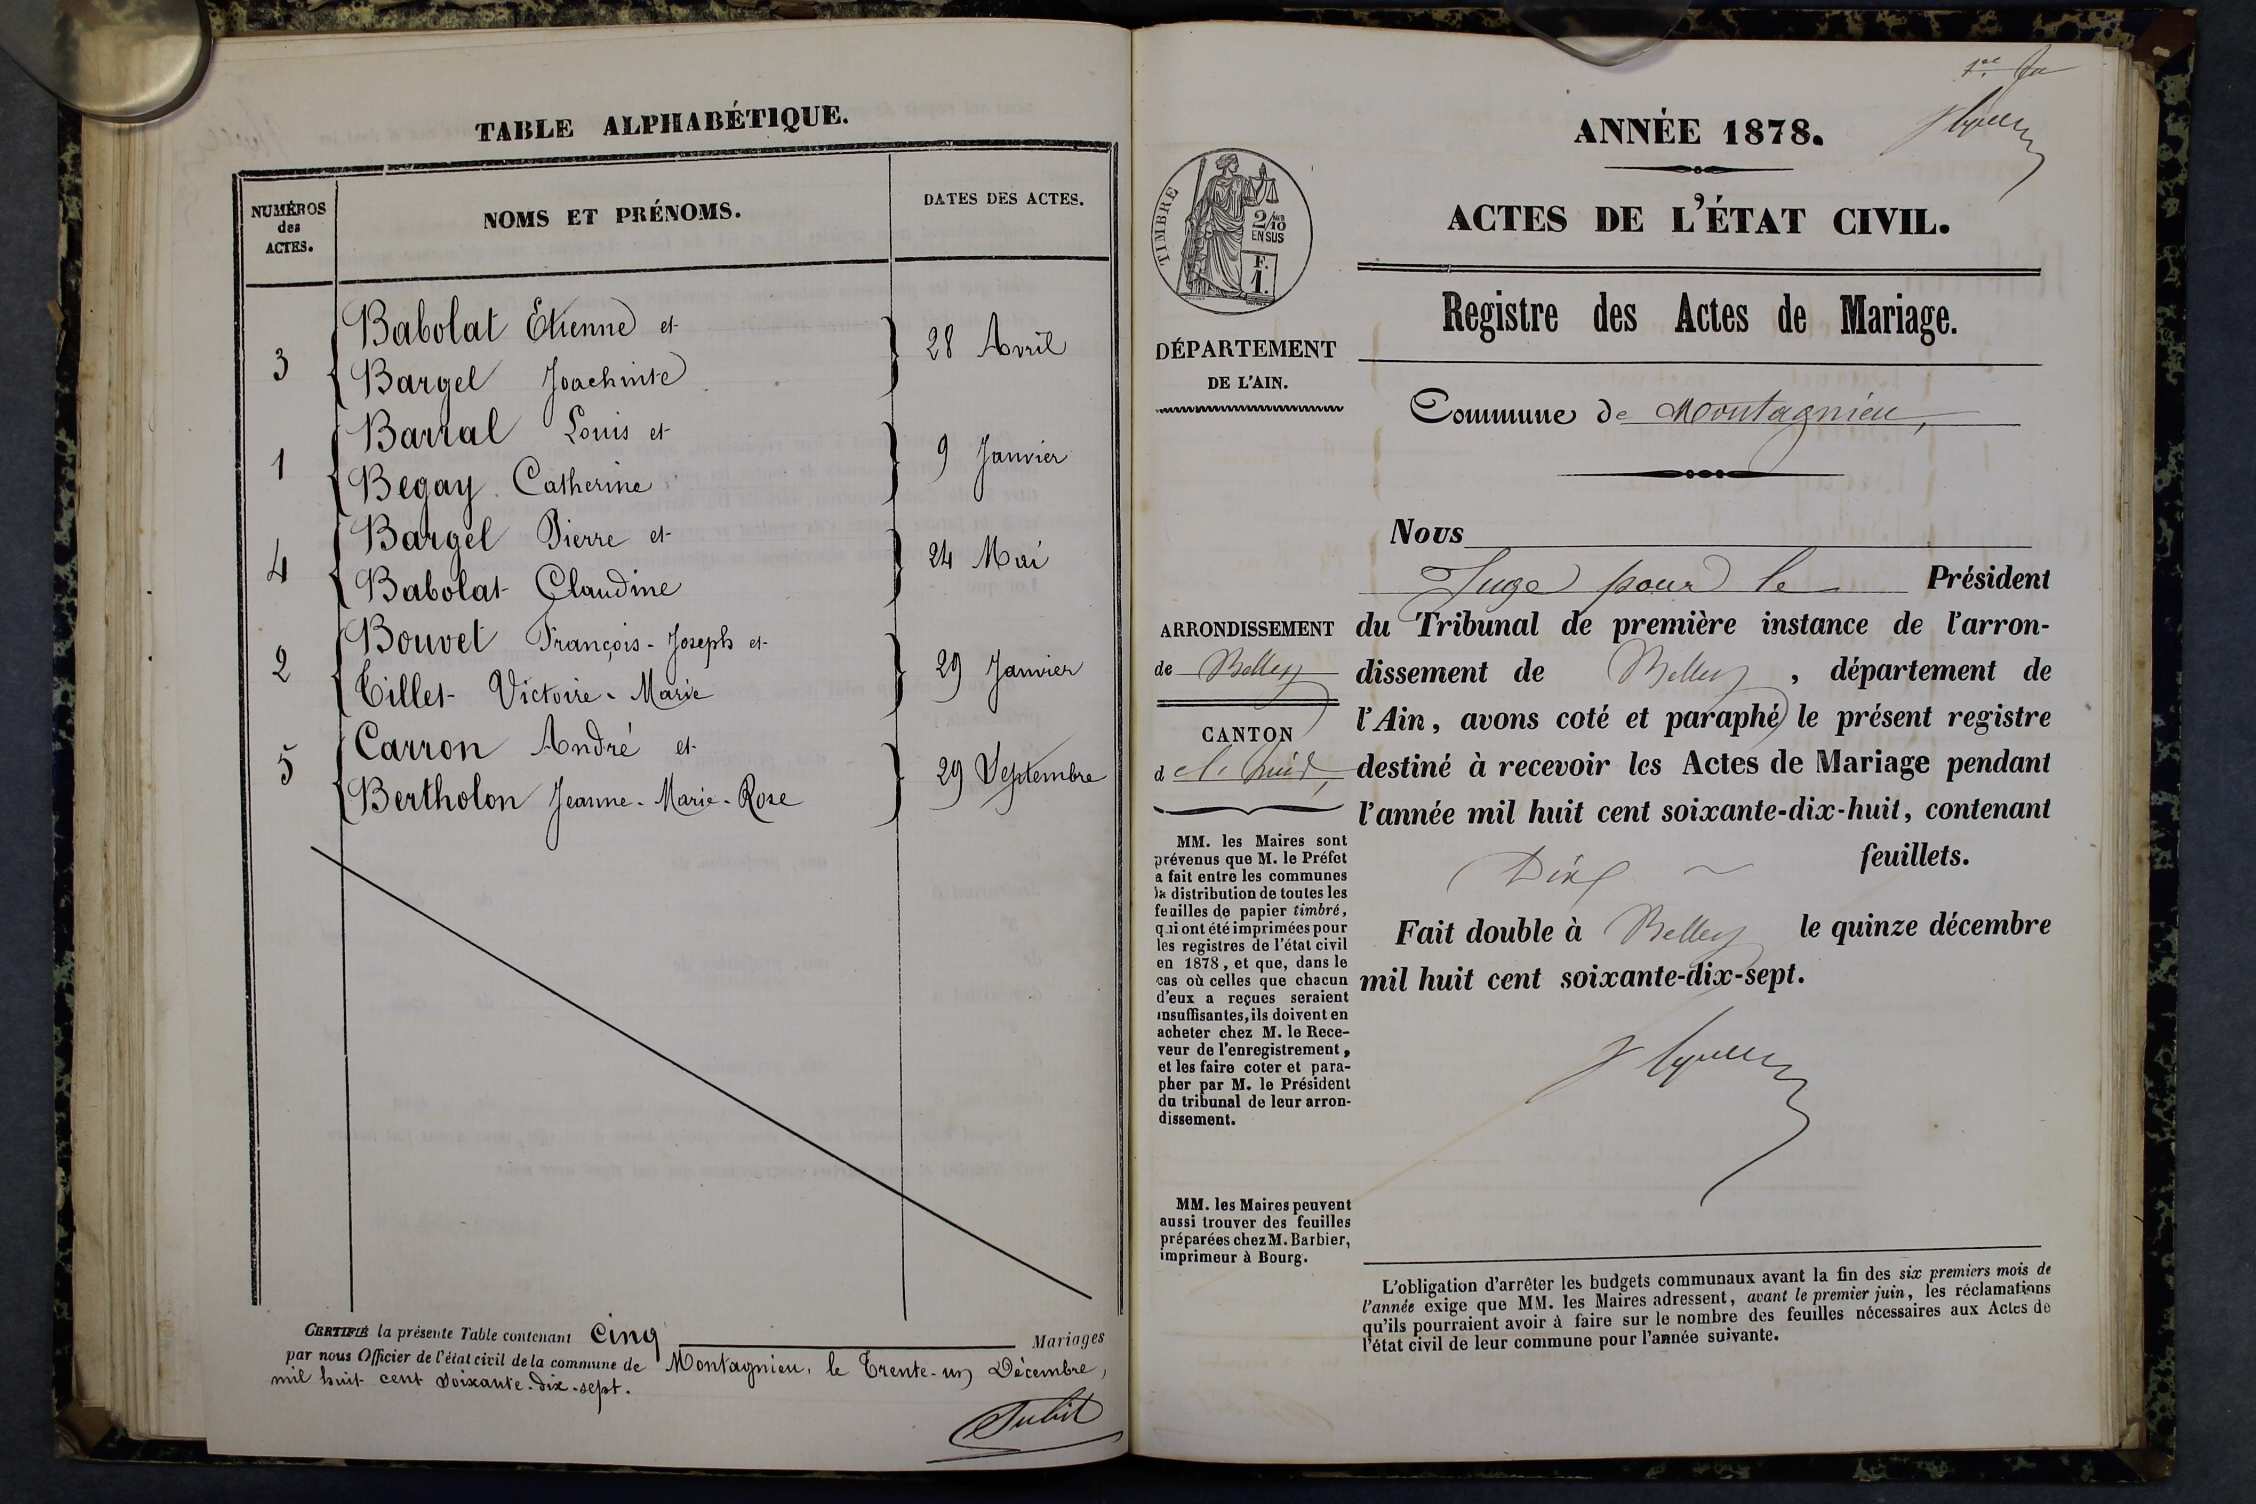 TABLE ALPHABÉTIQUE.
NUMÉROS
des
ACTES.
NOMS ET PRÉNOMS.
DATES DES ACTES.
Babolat Etienne et
3
28 Avril
Bargel Joachinte
Barral Louis et
1
9 Janvier
Begay Catherine
Bargel Pierre et
4
24 Mai
Babolat Claudine
Bouvet François-Joseph et
2
29 Janvier
Tillet Victoire-Marie
Carron André et
5
29 Septembre
Bertholon Jeanne-Marie-Rose
CERTIFIÉ la présente Table contenant Cinq Mariages
par nous Officier de l'état civil de la commune de Montagnieu, le Trente-un Décembre,
mil huit cent soixante-dix-sept.
ANNÉE 1878.
ACTES DE L'ÉTAT CIVIL.
TIMBRE
2/10
EN SUS
F.
1.
Registre des Actes de Mariage.
DÉPARTEMENT
DE L'AIN.
Commune de Montagnieu,
Nous
Juge pour le Président
ARRONDISSEMENT
de Belley
CANTON
d
du Tribunal de première instance de l'arron-
dissement de Belley, département de
l'Ain, avons coté et paraphé le présent registre
destiné à recevoir les Actes de Mariage pendant
l'année mil huit cent soixante-dix-huit, contenant
Dix feuillets.
Fait double à Belley le quinze décembre
mil huit cent soixante-dix-sept.
MM. les Maires sont
prévenus que M. le Préfet
a fait entre les communes
la distribution de toutes les
feuilles de papier timbré,
qui ont été imprimées pour
les registres de l'état civil
en 1878, et que, dans le
cas où celles que chacun
d'eux a reçues seraient
insuffisantes, ils doivent en
acheter chez M. le Rece-
veur de l'enregistrement,
et les faire coter et para-
pher par M. le Président
du tribunal de leur arron-
dissement.
MM. les Maires peuvent
aussi trouver des feuilles
préparées chez M. Barbier,
imprimeur à Bourg.
L'obligation d'arrêter les budgets communaux avant la fin des six premiers mois de
l'année exige que MM. les Maires adressent, avant le premier juin, les réclamations
qu'ils pourraient avoir à faire sur le nombre des feuilles nécessaires aux Actes de
l'état civil de leur commune pour l'année suivante.